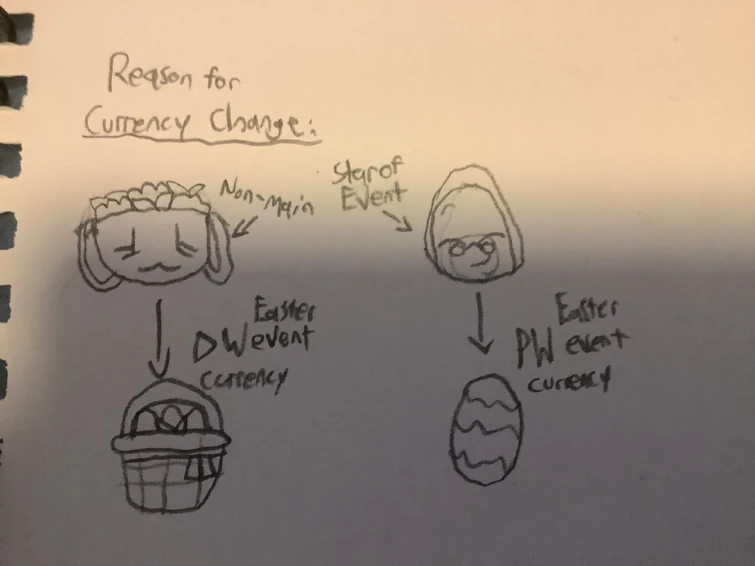 Reason for
Currency Change:
Non-Main
Star of
Event
Easter
DW event
currency
Easter
PW event
currency